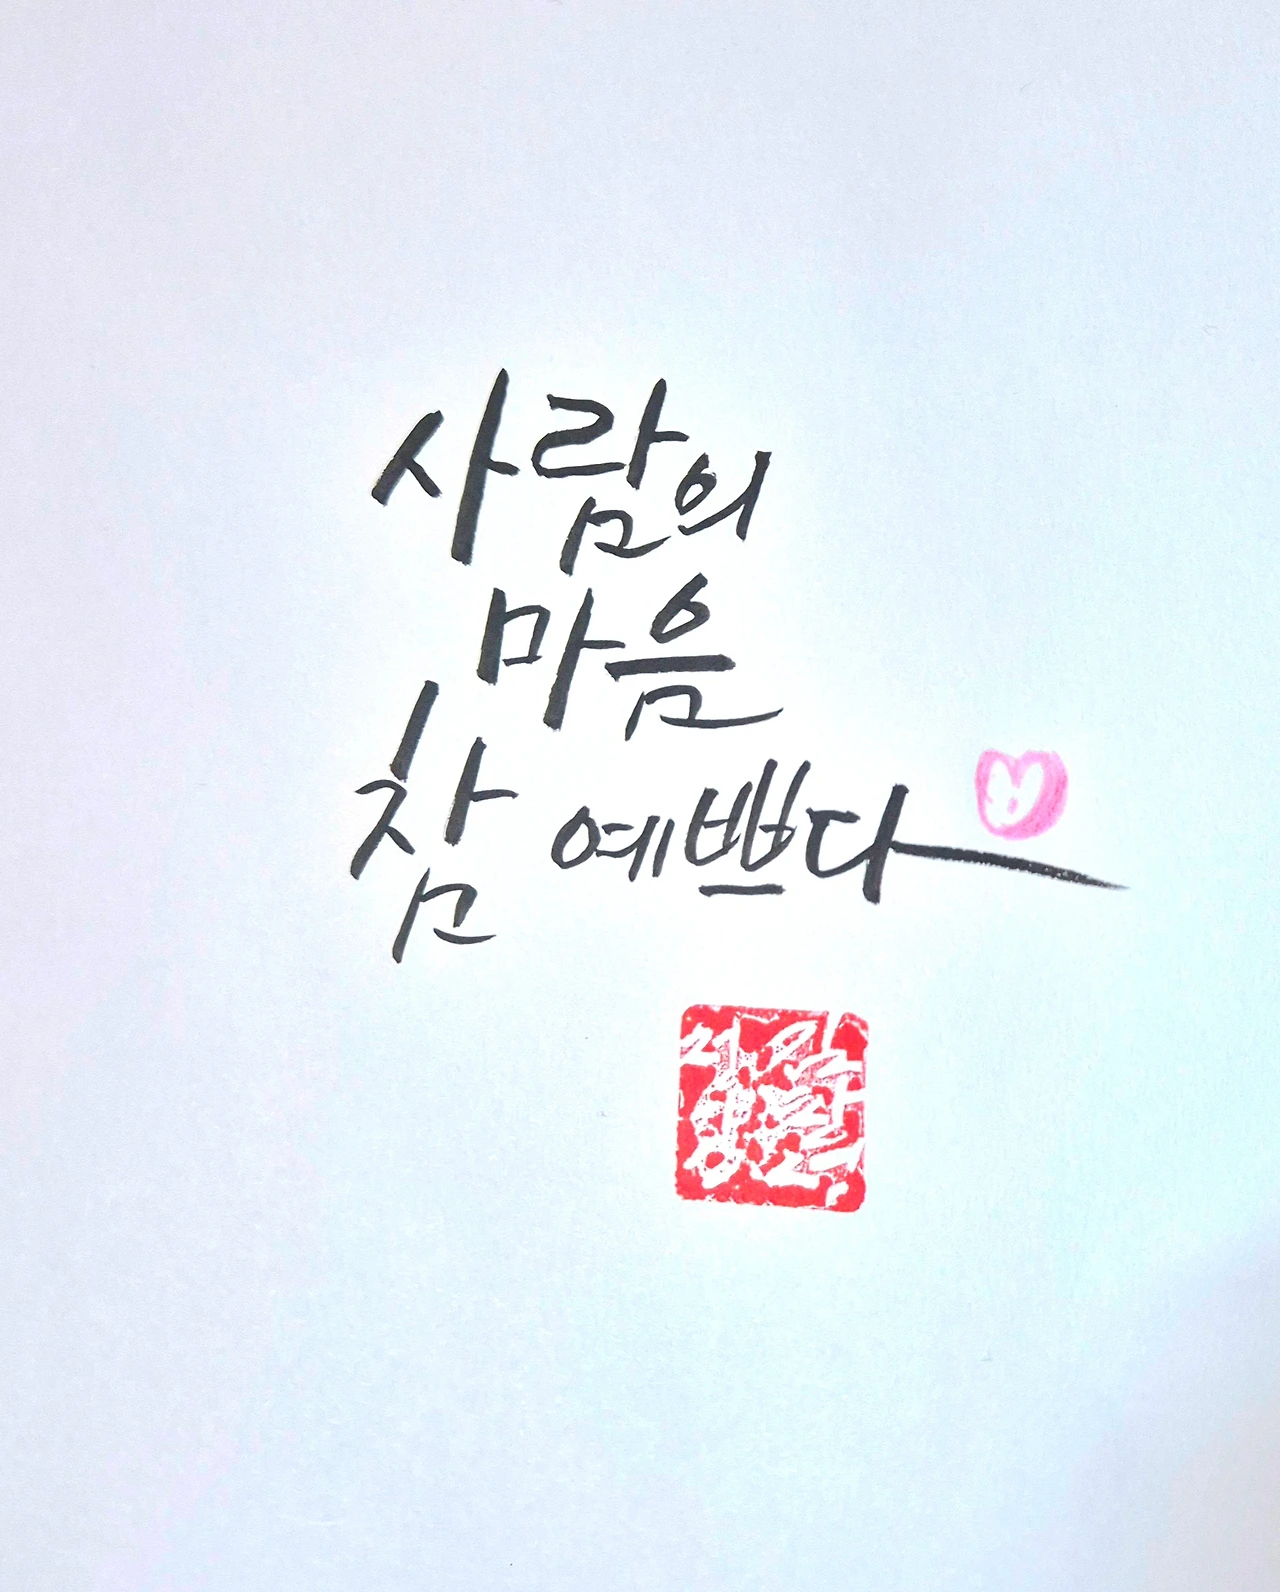 사람의
마음
참 예쁘다